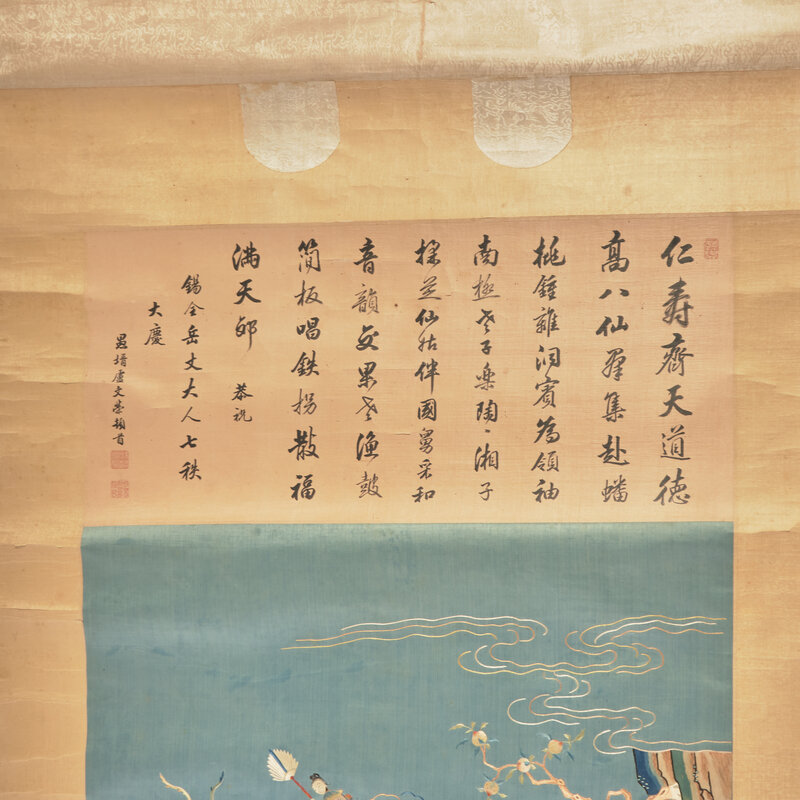 仁壽齊天道德
高八仙羣集赴蟠
桃鍾離洞賓為領袖
南極老子樂陶〻湘子
採芝仙姑伴國舅采和
音韻交果老漁鼓
简板唱鉄拐散福
满天 恭祝
錫全岳丈大人七秩
大慶
愚壻盧文頓首